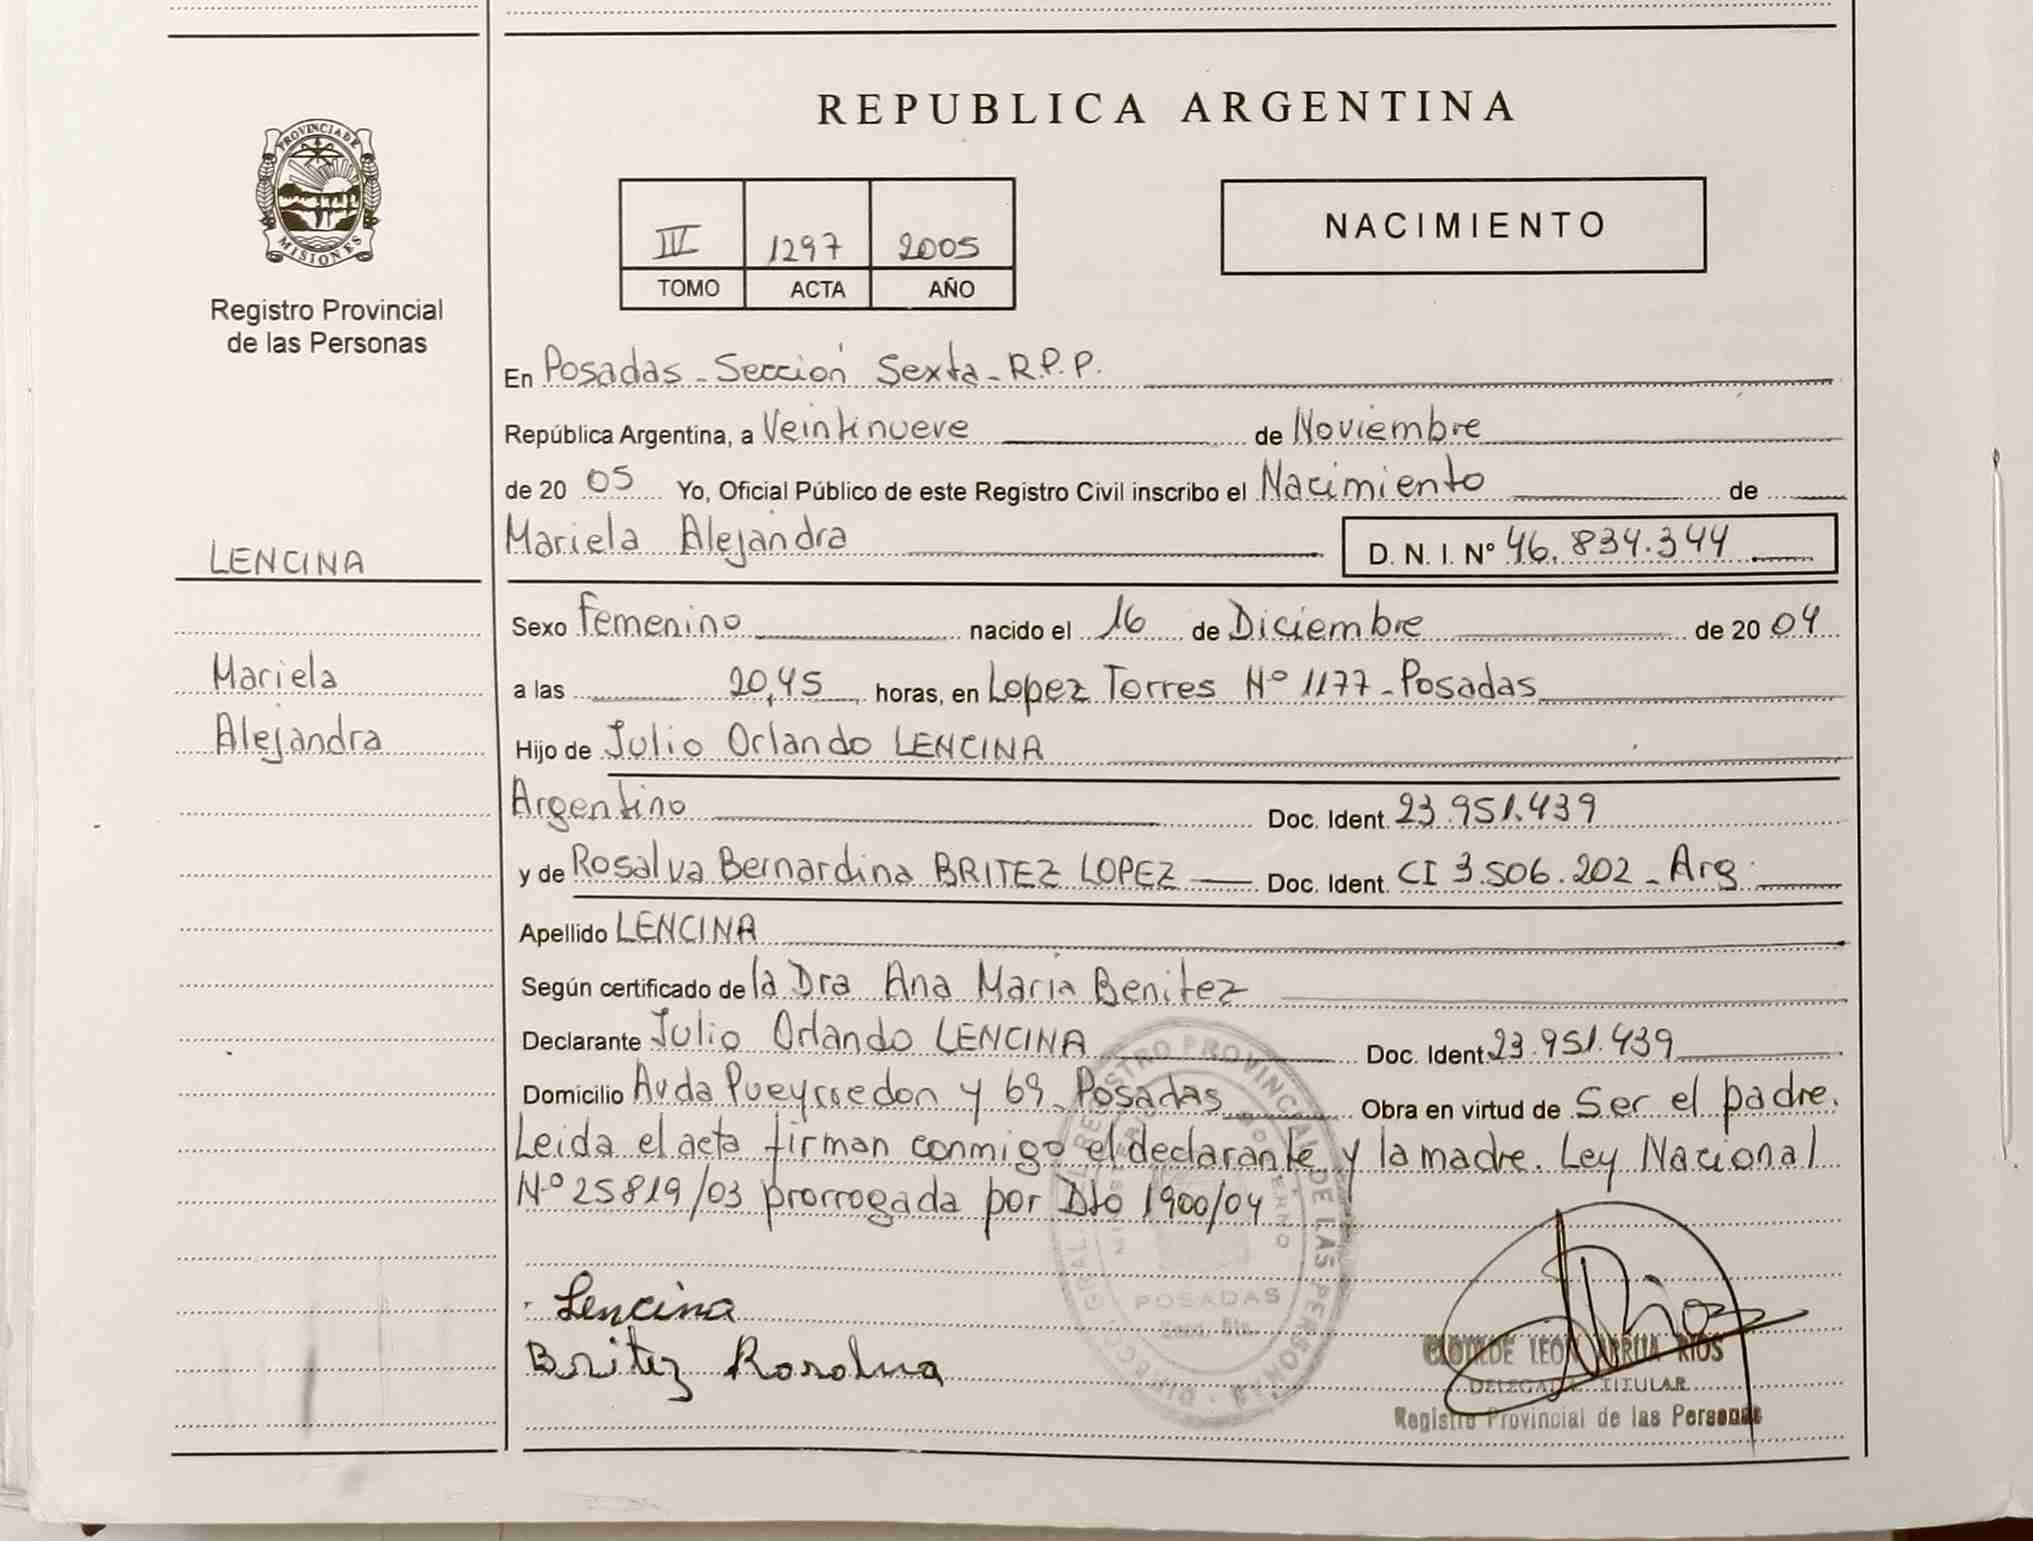 REPUBLICA ARGENTINA
PROVINCIA DE
MISIONES
Registro Provincial
de las Personas
IV 1297 2005
TOMO ACTA AÑO
NACIMIENTO
En Posadas - Sección Sexta - R.P.P.
República Argentina, a Veintinueve de Noviembre
de 20 05 Yo, Oficial Público de este Registro Civil inscribo el Nacimiento de
Mariela Alejandra D. N. I. N° 46.834.344
LENCINA
Mariela
Alejandra
Sexo Femenino nacido el 16 de Diciembre de 20 04
a las 20,45 horas, en Lopez Torres Nº 1177 - Posadas
Hijo de Julio Orlando LENCINA
Argentino Doc. Ident. 23.951.439
y de Rosalva Bernardina BRITEZ LOPEZ Doc. Ident. CI 3.506.202 - Arg.
Apellido LENCINA
Según certificado de la Dra Ana Maria Benitez
Declarante Julio Orlando LENCINA Doc. Ident. 23.951.439
Domicilio Avda Pueyrredon y 69 - Posadas Obra en virtud de Ser el padre.
Leida el acta firman conmigo el declarante y la madre. Ley Nacional
Nº 25819/03 prorrogada por Dto 1900/04
Lencina
Britez Rosalva
POSADAS
Rios
RIOS
DELEGADA TITULAR
Registro Provincial de las Personas